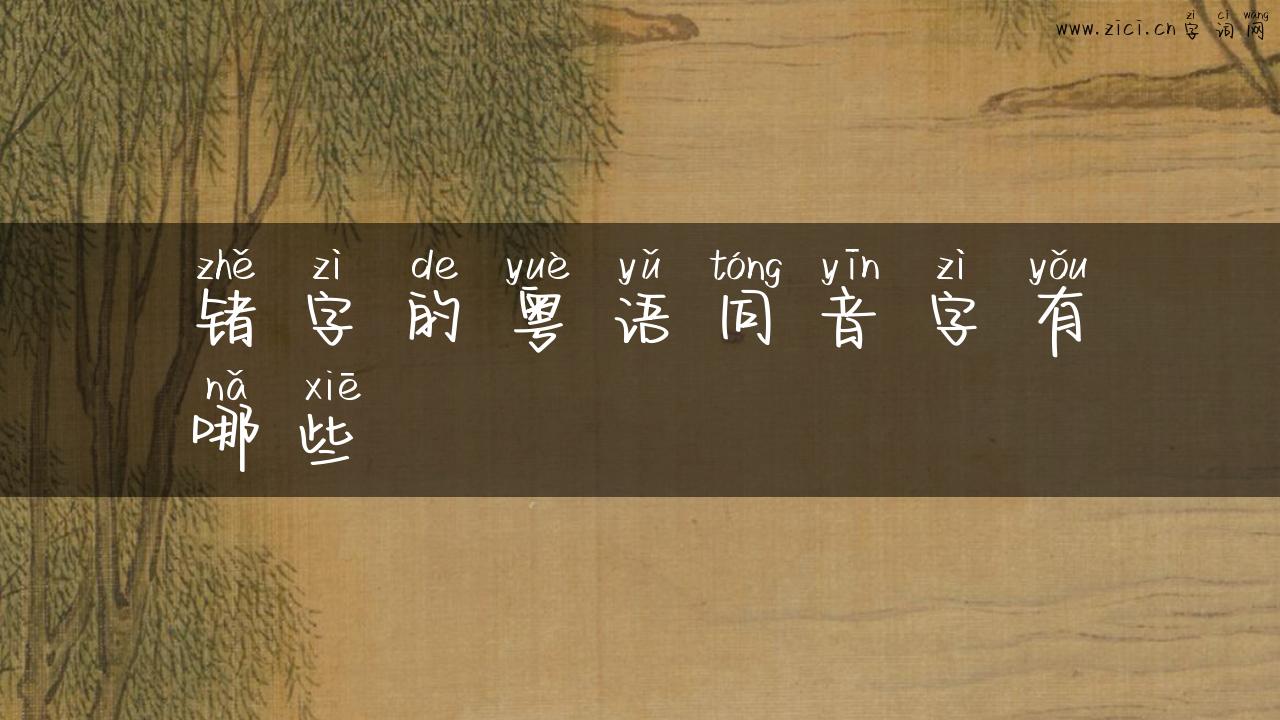 zì cí wǎng
www.zici.cn 字词网
zhě zì de yuè yǔ tóng yīn zì yǒu
锗字的粤语同音字有
nǎ xiē
哪些